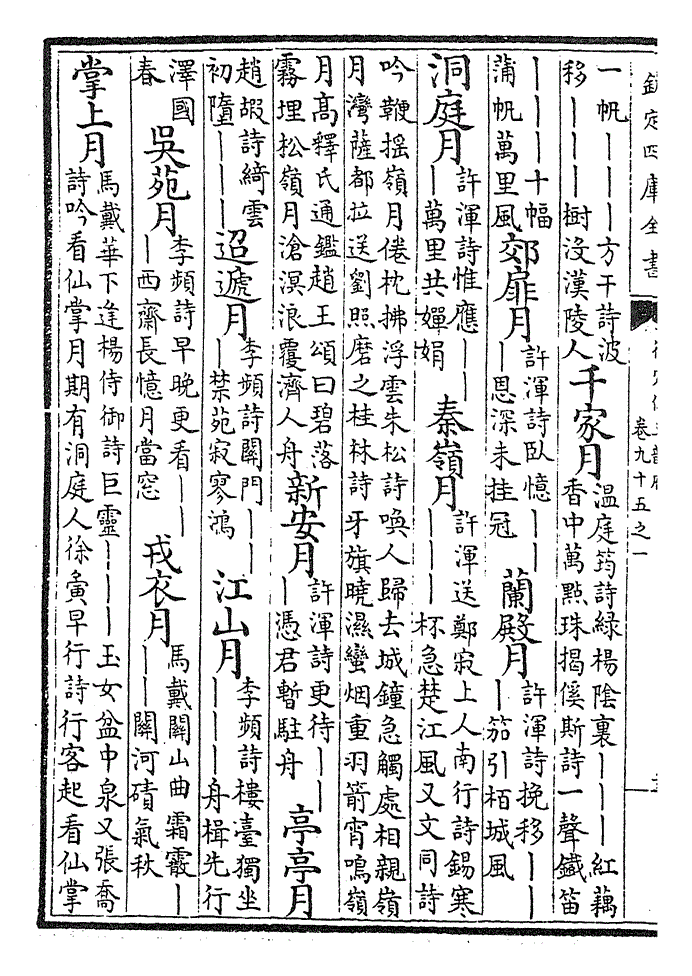 欽定四庫全書
卷九十五之一
一帆｜｜｜方干詩波
移｜｜｜樹沒漢陵人
千家月
溫庭筠詩綠楊陰裏｜｜｜紅藕
香中萬點珠揭傒斯詩一聲鐵笛
｜｜｜十幅
蒲帆萬里風
郊扉月
許渾詩卧憶｜｜
｜恩深未挂冠
蘭殿月
許渾詩挽移｜｜
｜笳引栢城風
洞庭月
許渾詩惟應｜｜
｜萬里共嬋娟
秦嶺月
許渾送鄭寂上人南行詩錫寒
｜｜｜杯急楚江風又文同詩
吟鞭揺嶺月倦枕拂浮雲朱松詩喚人歸去城鐘急觸處相親嶺
月灣薩都拉送劉照磨之桂林詩牙旗曉濕蠻烟重羽箭宵鳴嶺
月高釋氏通鑑趙王頌曰碧落
霧埋松嶺月滄溟浪覆濟人舟
新安月
許渾詩更待｜｜
｜憑君暫駐舟
亭亭月
趙嘏詩綺雲
初墮｜｜｜
迢遞月
李頻詩關門｜｜
｜禁苑寂寥鴻
江山月
李頻詩樓臺獨坐
｜｜｜舟楫先行
澤國
春
吳苑月
李頻詩早晚更看｜｜
｜西齋長憶月當窓
戎衣月
馬戴關山曲霜霰｜
｜｜關河磧氣秋
掌上月
馬戴華下逢楊侍御詩巨靈｜｜｜玉女盆中泉又張喬
詩吟看仙掌月期有洞庭人徐夤早行詩行客起看仙掌